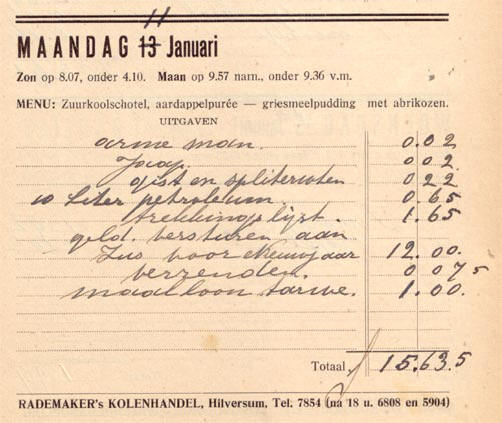 11
MAANDAG 13 Januari
Zon op 8.07, onder 4.10. Maan op 9.57 nam., onder 9.36 v.m.
MENU: Zuurkoolschotel, aardappelpurée — griesmeelpudding met abrikozen.
UITGAVEN
arme man. 0.02
Jaap. 002
gist en spliterwten 022
10 Liter petroleum. 0.65
trekkingslijst. 1.65
geld. versturen aan
Zus voor Nieuwjaar 12.00.
verzenden. 0 07 5
maalloon tarwe. 1.00.
Totaal 15.63.5
RADEMAKER's KOLENHANDEL, Hilversum, Tel. 7854 (na 18 u. 6808 en 5904)